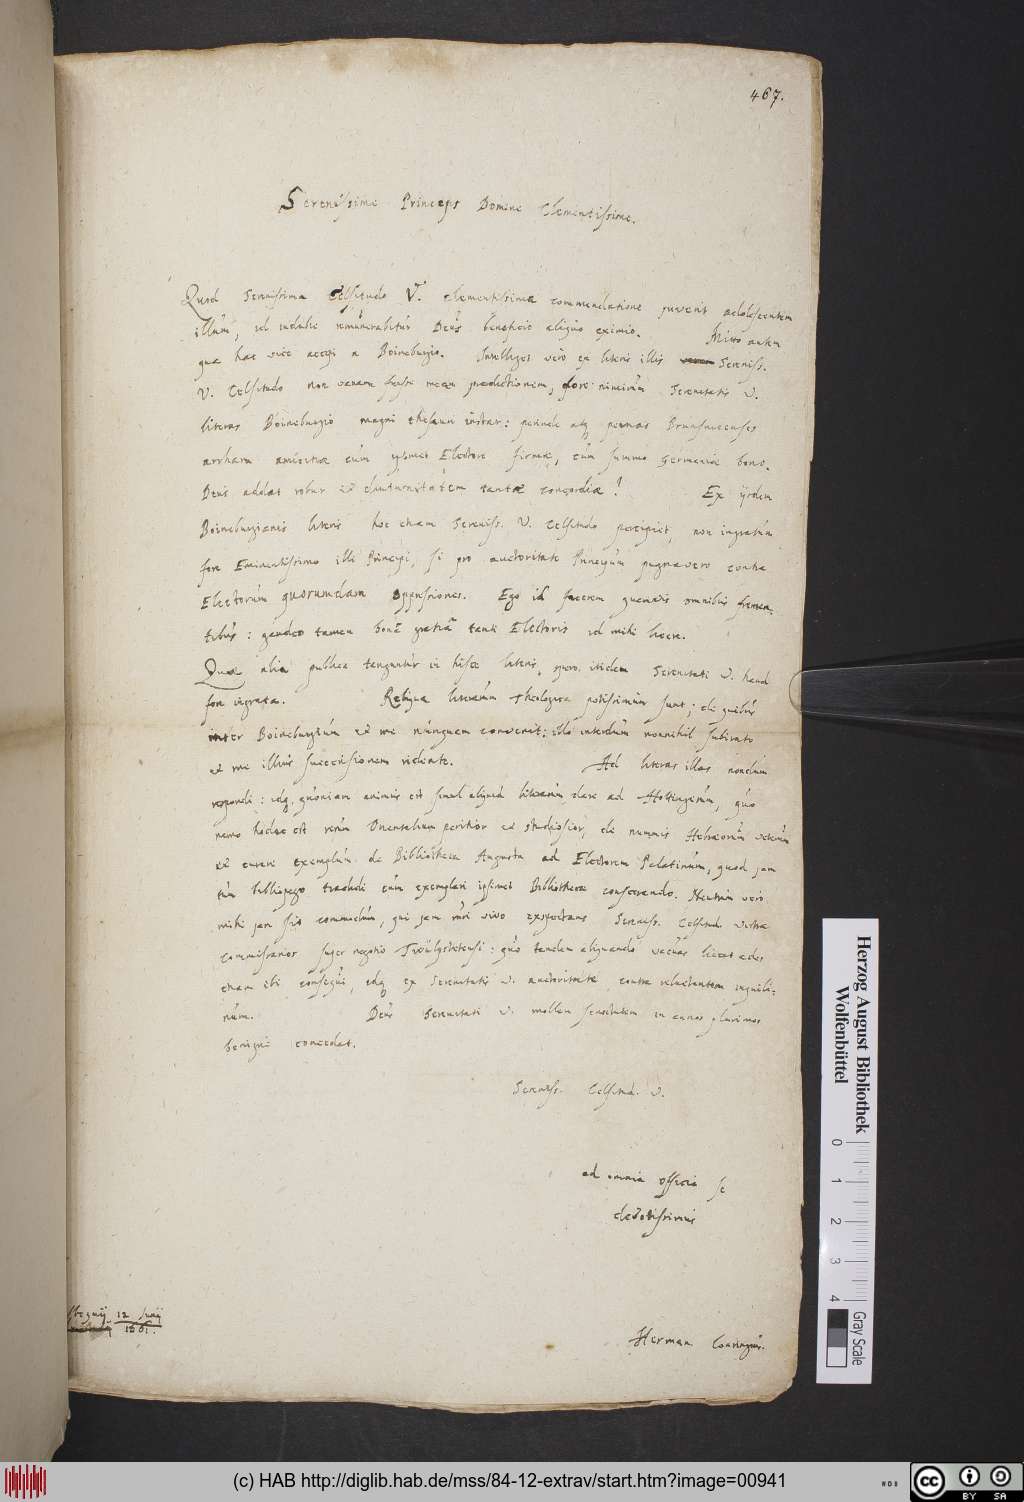 467.
Serenissime Princeps Domine Clementissime.
Quod Serenissima Celsitudo V. clementissima commendatione juverit adolescentem
illum, id indubie remunerabitur Deus beneficio aliquo eximio. Mitto autem
quae hac vice accepi a Boineburgio. Intelliget vero ex literis illis Sereniss.
V. Celsitudo non vanam fuisse meam praedictionem, fore nimirum Serenitatis V.
literas Boineburgio magni thesauri instar: perinde atq
arrham amicitiae cum ipsomet Electore firmae, cum summo Germaniae bono.
Deus addat robur et diuturnitatem tantae concordiae! Ex ijsdem
Boineburgianis literis hoc etiam Sereniss. V. Celsitudo percipiet, non ingratum
fore Eminentissimo illi Principi, si pro auctoritate Principum pugnavero contra
Electorum quorundam oppressiones. Ego id facerem quamvis omnibus fremen-
tibus: gaudeo tamen bona gratia tanti Electoris id mihi licere.
Quae alia publica tanguntur in hisce literis, spero itidem Serenitati V. haud
fore ingrata. Reliqua literarum Theologica potissimum sunt; de quibus
inter Boineburgium et me nunquam convenit: illo interdum nonnihil subirato
et me illius succensionem ridente. Ad literas illas nondum
respondi: idq. quoniam animus est simul aliquid literarum dare ad Hottingerum, quo
nemo hodie est rerum Orientalium peritior et studiosior, de nummis Hebraeorum veterum
et curare exemplum de Bibliotheca Augusta ad Electorem Palatinum, quod jam
tum bibliopego tradidi cum exemplari ipsimet Bibliothecae conferendo. Neutrum vero
mihi jam fuit commodum, qui jam ruri vivo exspectans Sereniss. Celsitud. Vestrae
commissarios super negotio : quo tandem aliquando vacuas liceat aedes
etiam ibi consequi, idq ex Serenitatis V. auctoritate contra reluctantem inquili-
num. Deus Serenitati V. mollem senectutem in annos plurimos
benigne concedat.
Sereniss. Celsitud. V.
ad omnia officia se
devotissimus
12 Junij
1661.
Herman Conringius.
Herzog August Bibliothek
Wolfenbüttel
0 1 2 3 4
Gray Scale
(c) HAB http://diglib.hab.de/mss/84-12-extrav/start.htm?image=00941
cc BY SA